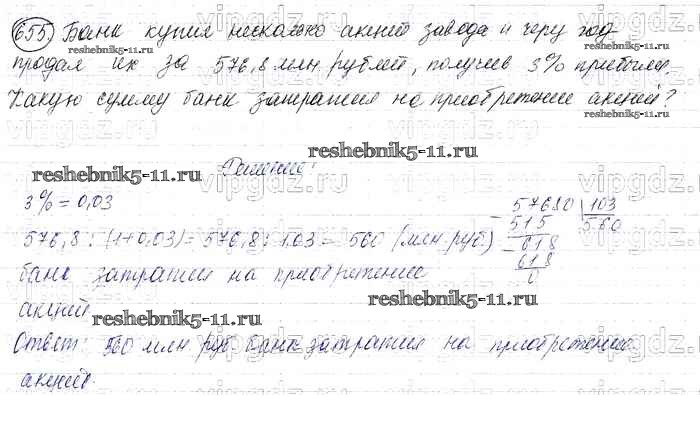 655) Банк купил несколько акций завода и через год
reshebnik5-11.ru
продал их за 576,8 млн рублей, получив 3% прибыли.
Какую сумму банк затратил на приобретение акций?
reshebnik5-11.ru
reshebnik5-11.ru
Решение:
3% = 0,03
576,8 : (1+0,03) = 576,8 : 1.03 = 560 (млн. руб)
57680 | 103
- 515 560
- 618
618
0
банк затратил на приобретение
акций
reshebnik5-11.ru
reshebnik5-11.ru
Ответ: 560 млн руб банк затратил на приобретение
акций.